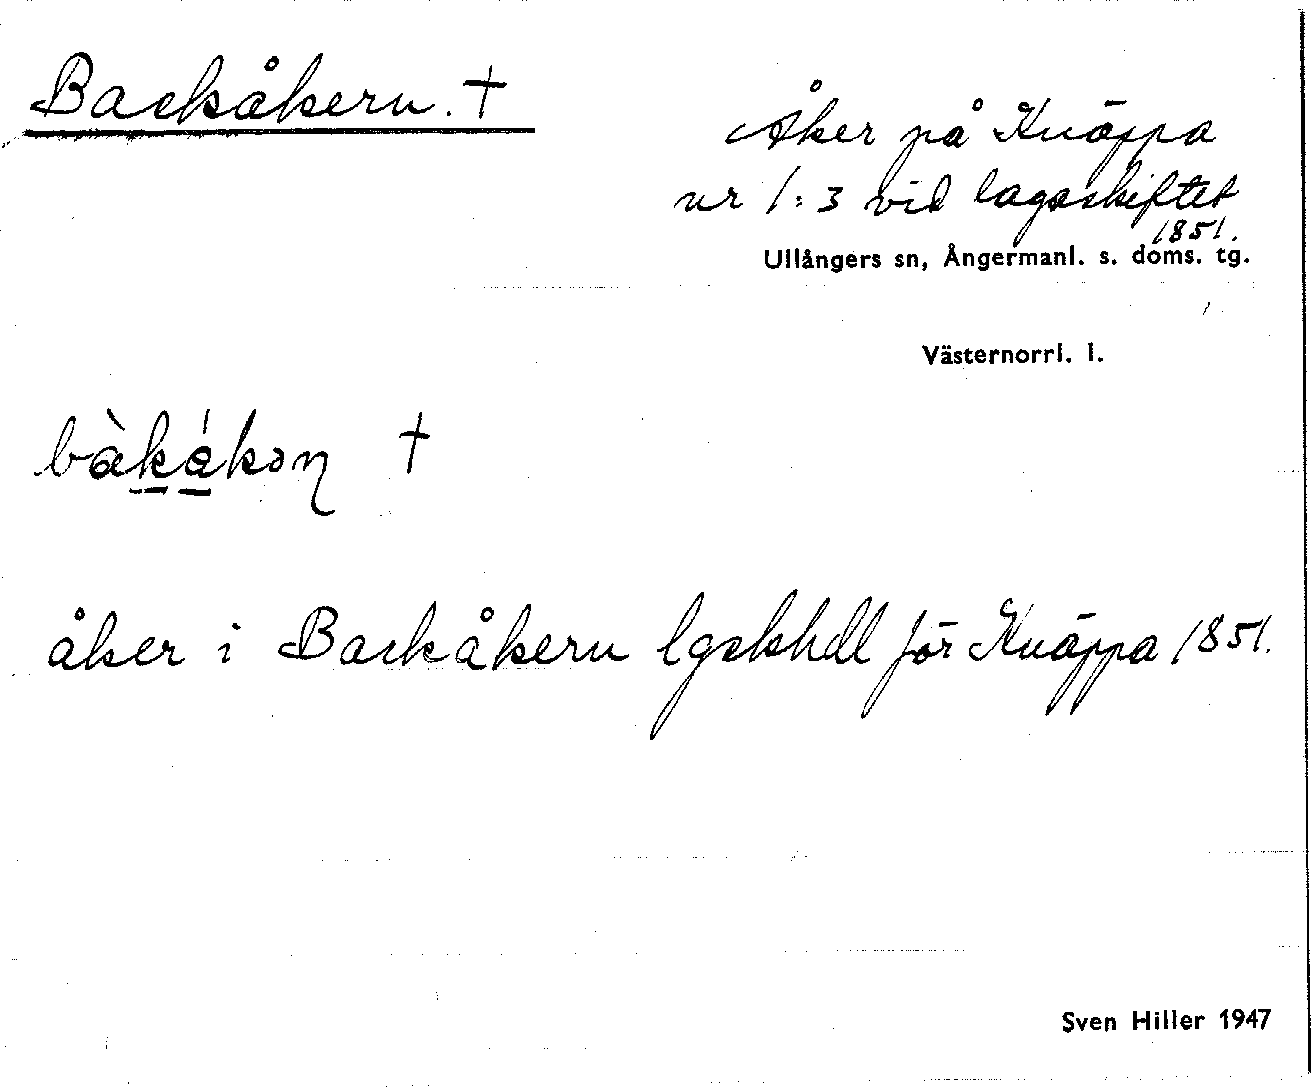 Backåkern. †
Åker på Knäppa
nr 1:3 vid lagaskiftet
1851.
Ullångers sn, Ångermanl. s. doms. tg.
Västernorrl. l.
bàkåkəɳ †
åker i Backåkern lgskhdl för Knäppa 1851.
Sven Hiller 1947